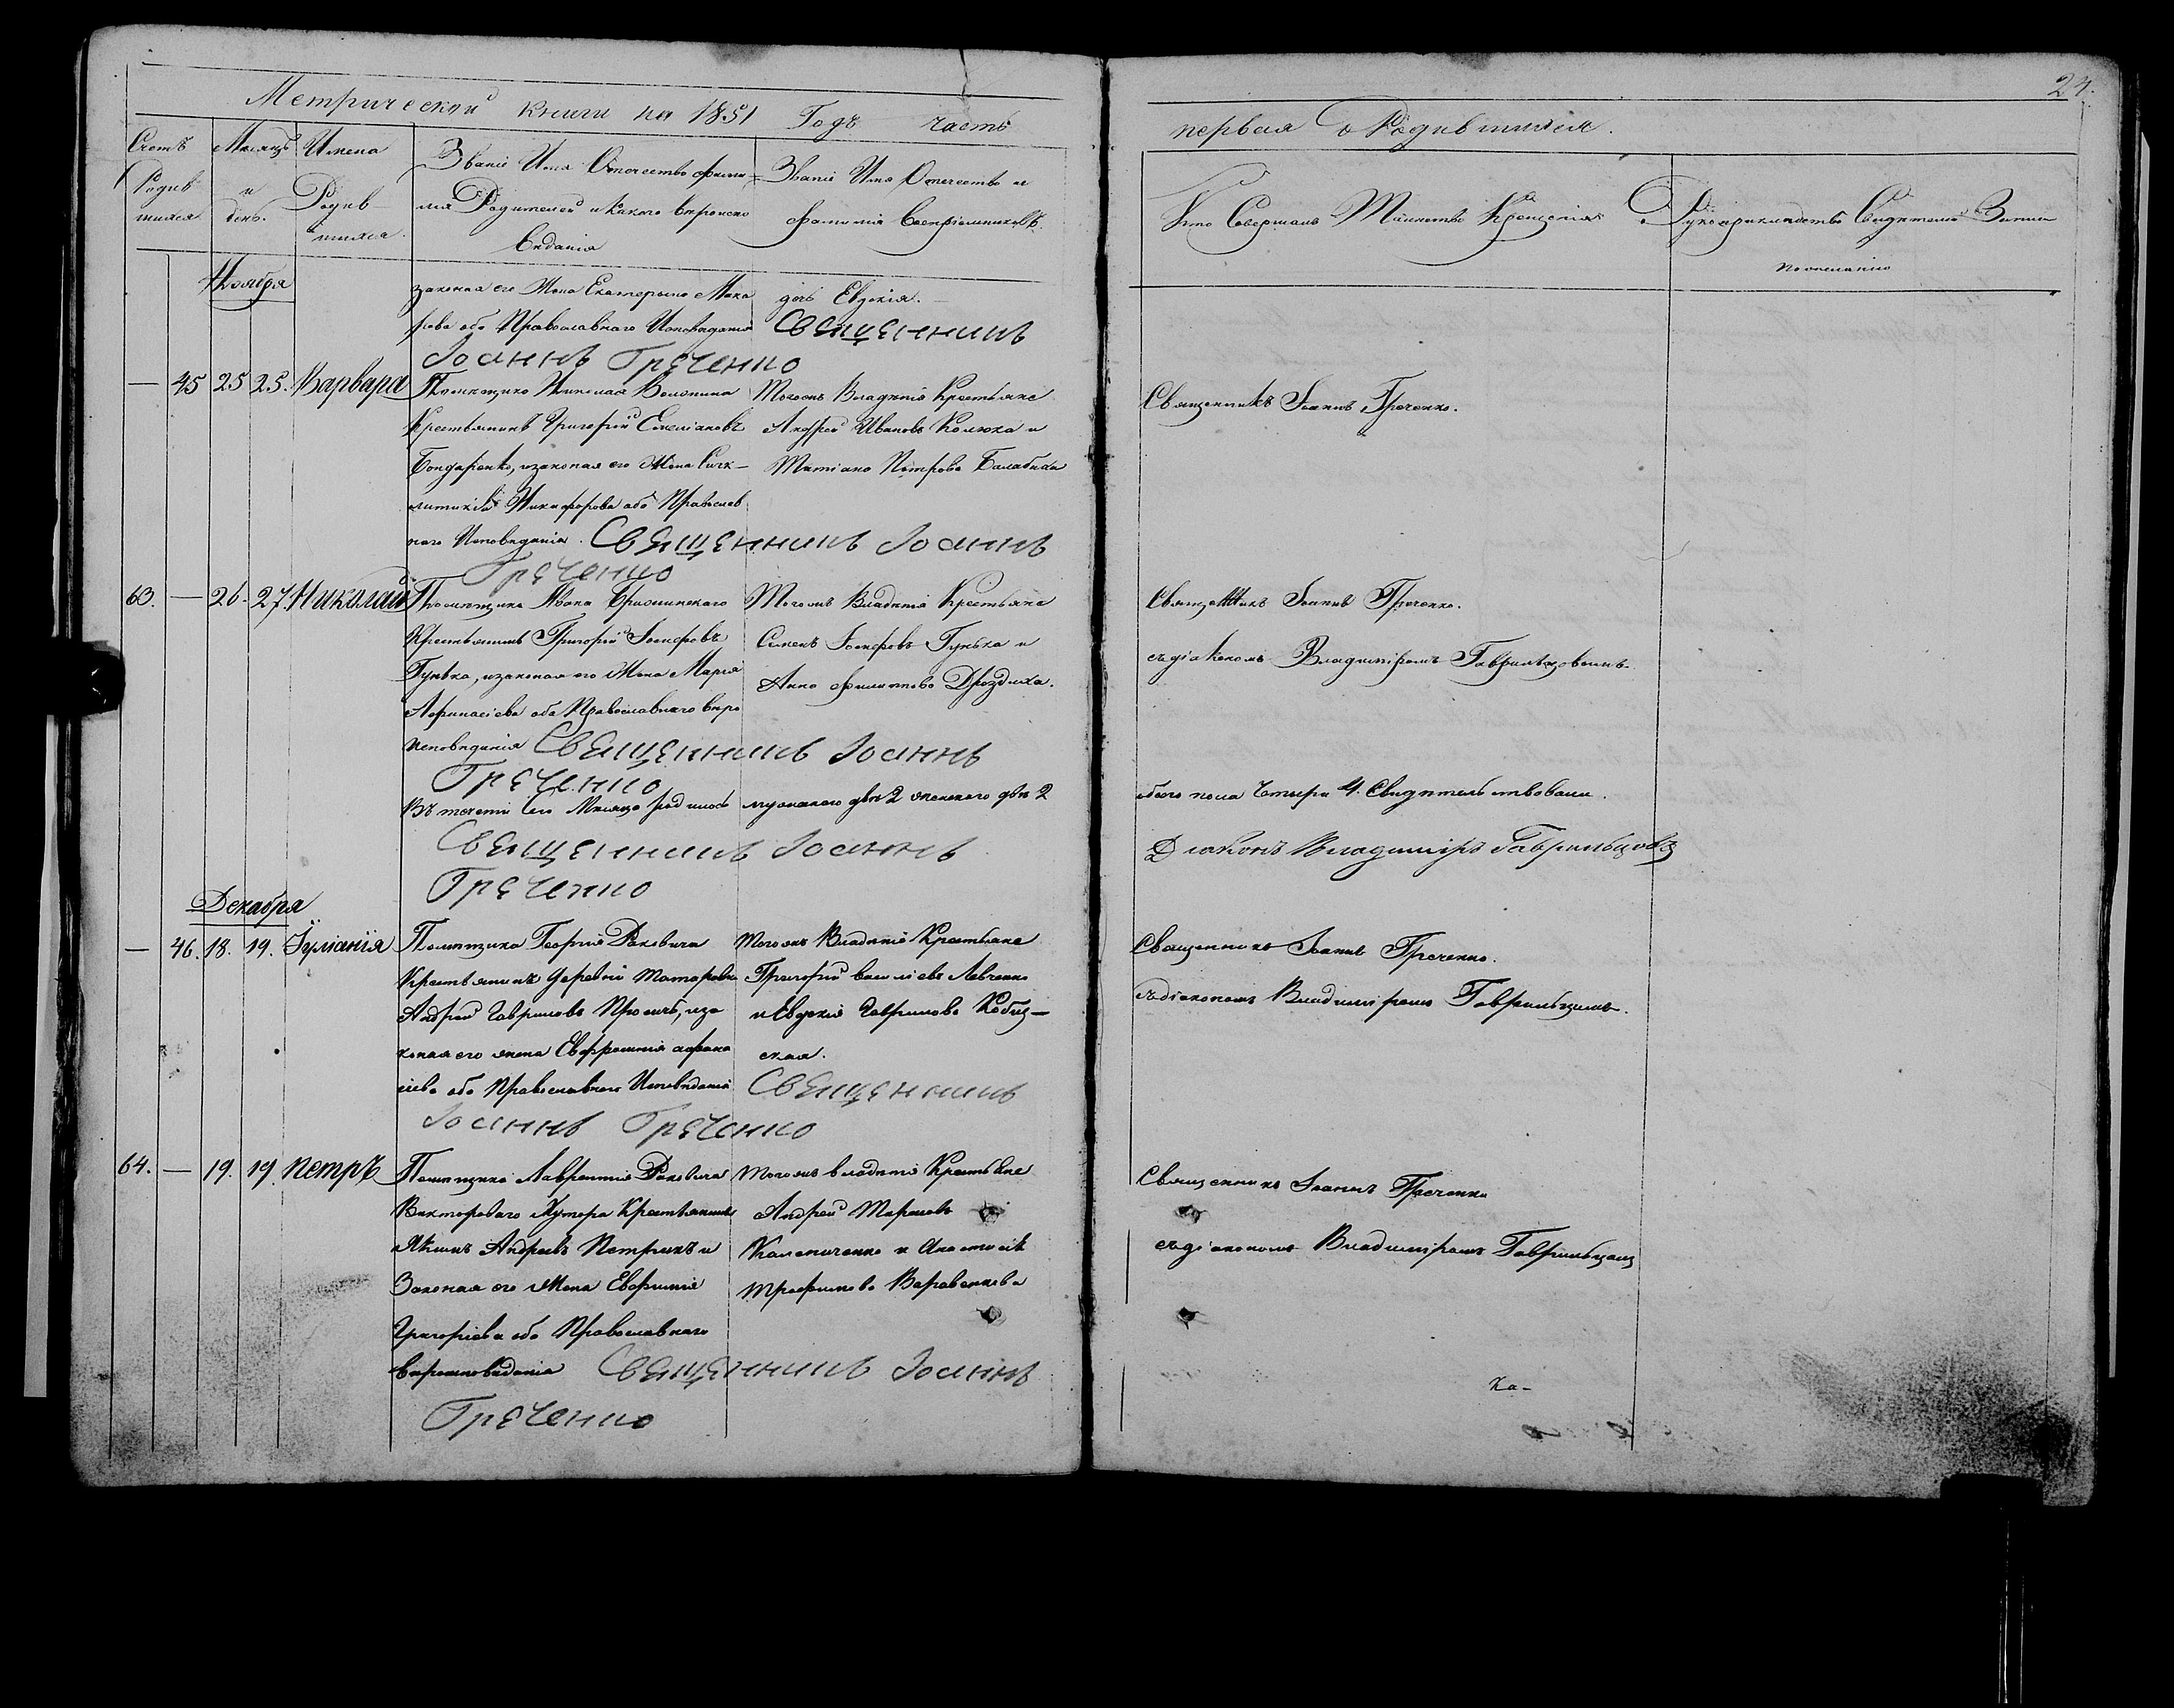 Метрической книги на 1851 Годъ часть
первая о Родившихся.
24.
Счетъ Родившихся.
Месяцъ и день.
Имена Родившихся.
Званіе Имя Отечество фамилія Родителей и какого вероисповеданія
Званіе Имя Отечество и фамилія Воспріемниковъ.
Кто Совершалъ Таинство Крещенія
Рукоприкладство Свидетелей Записи по желанію
Ноября
законая его Жена Екатерина Мака
рова оба Православнаго Исповеданія
дочь Евдокія.
Священникъ
Іоаннъ Греченко
— 45 25 25. Варвара
Помещика Николая
Крестьянинъ Григорій Емеліановъ
Бондаренко, изаконая его Жена
Никифорова оба Православ
наго Исповеданія. Священникъ Іоаннъ
Греченко
Тогожъ Владенія Крестьяне
Андрей Ивановъ Колюка и
Татіана Петрова Балабиха
Священникъ Іоаннъ Греченко.
63. — 26. 27. Николай
Помещика Ивана
Крестьянинъ Григорій Іосифовъ
Гунька, изаконая его Жена Марія
Афанасіева оба Православнаго веро
исповеданія Священникъ Іоаннъ
Греченко
Тогожъ Владенія Крестьяне
Семенъ Іосифовъ Гунька и
Анна Филиппова Дроздиха.
Священникъ Іоаннъ Греченко.
съдіакономъ Владиміромъ
Въ теченіи Сего Месяца родилось мужескаго два 2 женскаго два 2
обоего пола Четыри 4. Свидетельствовали.
Священникъ Іоаннъ
Греченко
Діаконъ Владиміръ Гаврильцовъ
Декабря
— 46. 18. 19. Іуліанія
Помещика Георгія Раковича
Крестьянинъ деревни
Андрей Гавриловъ иза
коная его жена Евфросинія афана
сіева оба Православнаго Исповеданія
Тогожъ Владенія Крестьяне
Григорій василіевъ Левченко
и Евдокія Гаврилова Кобиз—
ская.
Священникъ
Іоаннъ Греченко
Священникъ Іоаннъ Греченко.
съдіакономъ Владиміромъ Гаврильцомъ.
64. — 19. 19. Петръ
Помещика Лаврентія Раковича
Виктороваго Хутора Крестьянинъ
Якимъ Андреевъ Петрикъ и
Законая его Жена Евфимія
Григоріева оба Православнаго
вероисповеданія Священникъ Іоаннъ
Греченко
Тогожъ владенія Крестьяне
Андрей
и
Трофимова
Священникъ Іоаннъ Греченко
съдіакономъ Владиміромъ Гаврильцомъ
ка-